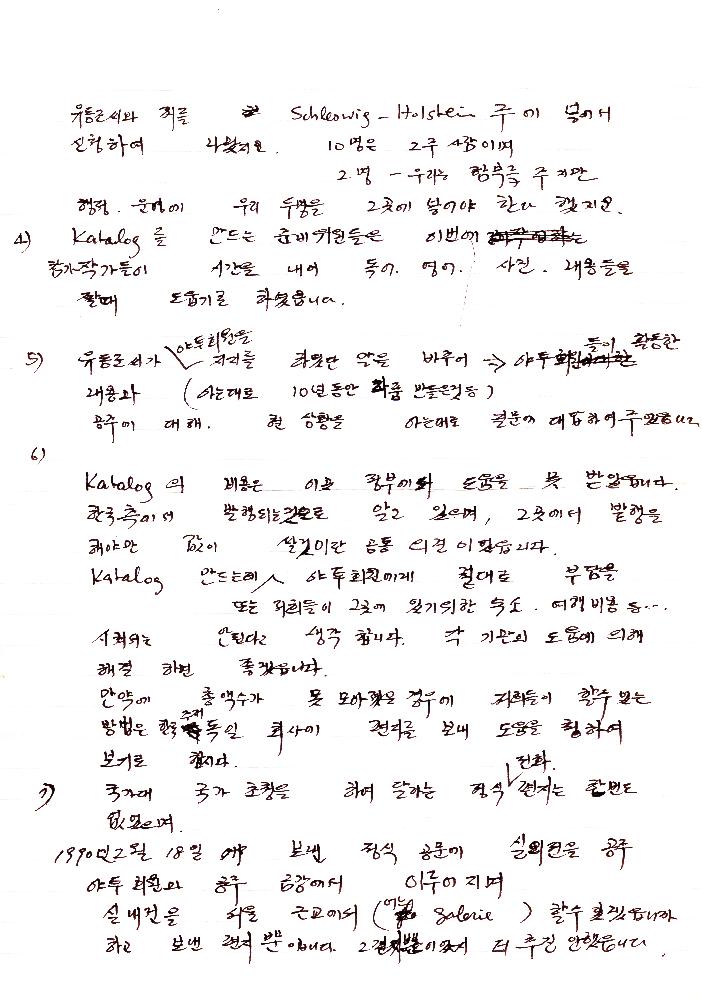 유동조씨와 저를 Schleswig-Holstein 주에 넣어서
신청하여 나왔지요. 10명은 2주 사람이며
2명 - 우리는 주지만
행정. 운영에 우리 두명을 그곳에 넣어야 한다 했지요.
4) Katalog를 만드는 준비위원들은 이번에
참가작가들이 시간을 내어 독어. 영어. 사진. 내용들을
할때 돕기로 하셨습니다.
5) 유동조씨가 야투회원을 저지를 하였단 말을 바꾸어 → 야투회원들이 활동한
내용과 (아는대로 10년동안 만들은것등)
공주에 대해. 현 상황을 아는대로 질문에 대답하여 주었습니다
6)
Katalog의 내용은 정부에서 도움을 못 받았습니다.
한국측에서 발행되는것으로 알고 있으며, 그곳에서 발행을
해야만 값이 쌀것이란 공통 의견이었습니다.
Katalog 만드는데 야투회원에게 절대로 부담을
또는 저희들이 그곳에 있기위한 숙소. 여행비용 등....
시켜서는 안된다고 생각합니다. 각 기관의 도움에 의해
해결 하면 좋겠습니다.
만약에 총액수가 못 모아졌을 경우에 저희들이 할수 있는
방법은 한국 주재 독일 회사에 편지를 보내 도움을 청하여
보기로 합시다.
7) 국가대 국가 초청을 하여 달라는 정식 전화. 편지는 한번도
없었으며.
1990년 2월 18일 보낸 정식 공문에 실외전을 공주
야투 회원과 공주 금강에서 이루어지며
실내전을 서울 근교에서 (어느 Galerie) 할수 있겠습니까
하고 보낸 편지 부분입니다. 더 추진 안했습니다.